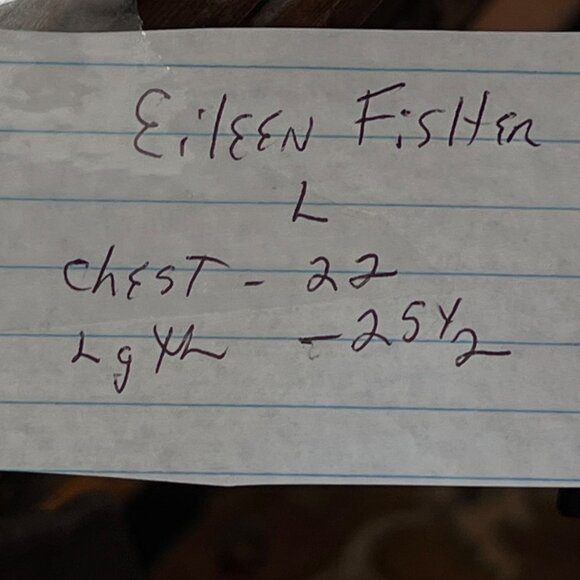 EilEEN FisHER
L
chEST - 22
LgTH - 25 1/2